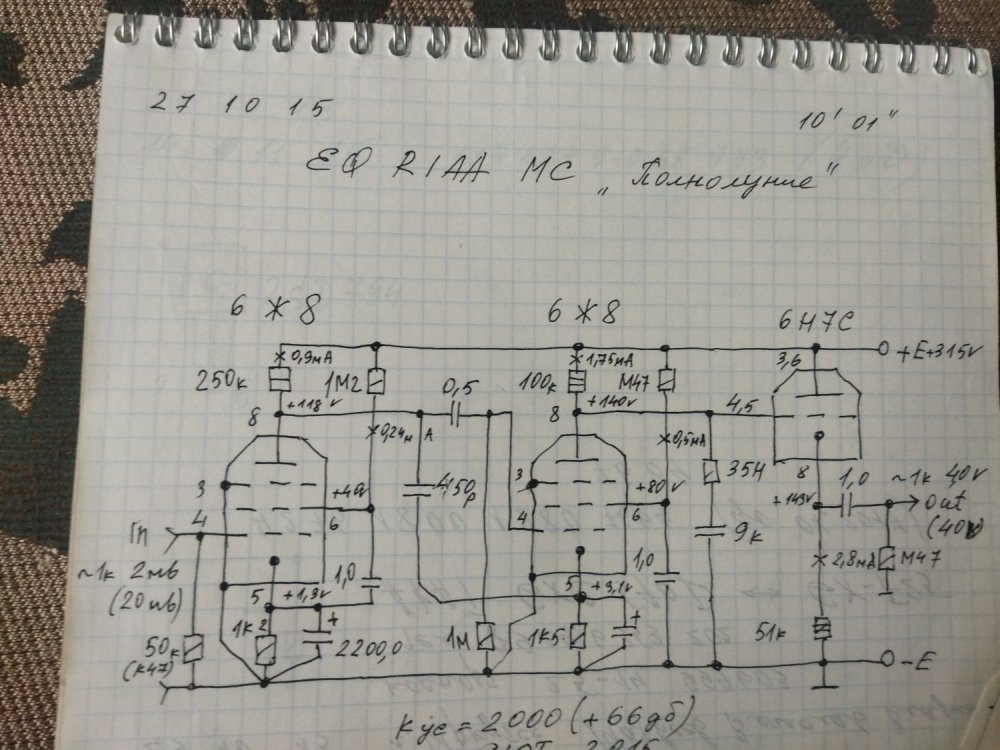 27 10 15
10' 01"
EQ RIAA MC „Полнолуние"
6Ж8 6Ж8 6Н7С
0,9мА 1,75мА 3,6 +E+315v
250к 1М2 0,5 100к М47
+118v +140v
8 8 4,5
0,24мА 0,5мА
450p 35Н 8 1,0 ~1к 4,0v
3 3 +143v out
+49v 6 +80v 6 (40v)
4 4
In 9к
~1к 2мв 1,0 1,0 2,8мА М47
(20мв) 5 +1,3v 5 +3,1v
+ +
50к 1К2 2200,0 1М 1К5 51к
(К47) -E
Кус = 2000 (+66дб)